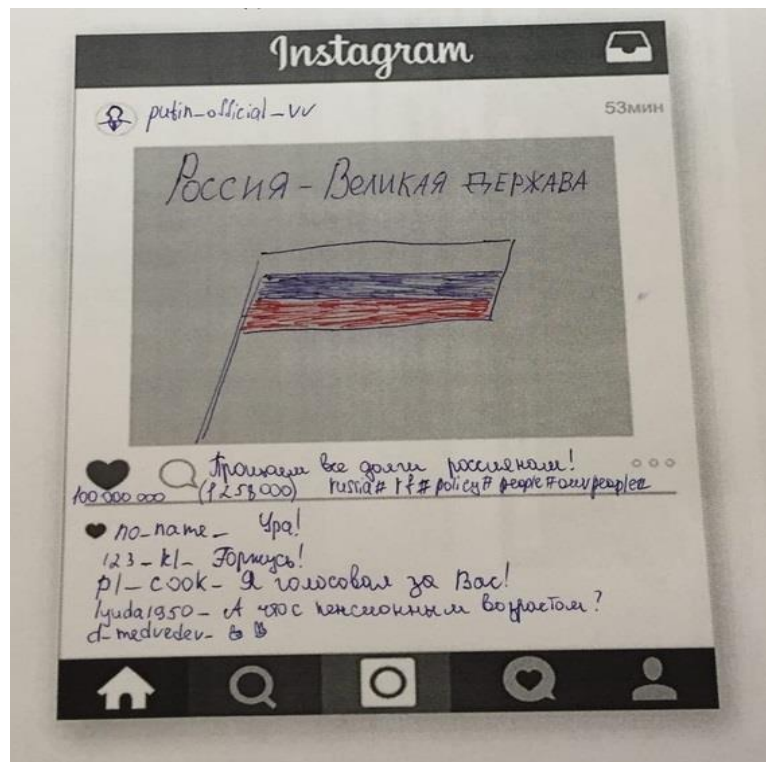 Instagram
putin_official_vv
53мин
Россия - Великая держава
Прощаем все долги россиянам!
100 000 000 (1 258 000) russia# rf# policy# people#ourpeople
no_name_ Ура!
123_kl_ Горжусь!
pl_cook_ Я голосовал за Вас!
lyuda1950_ А что с пенсионным возрастом?
d_medvedev_